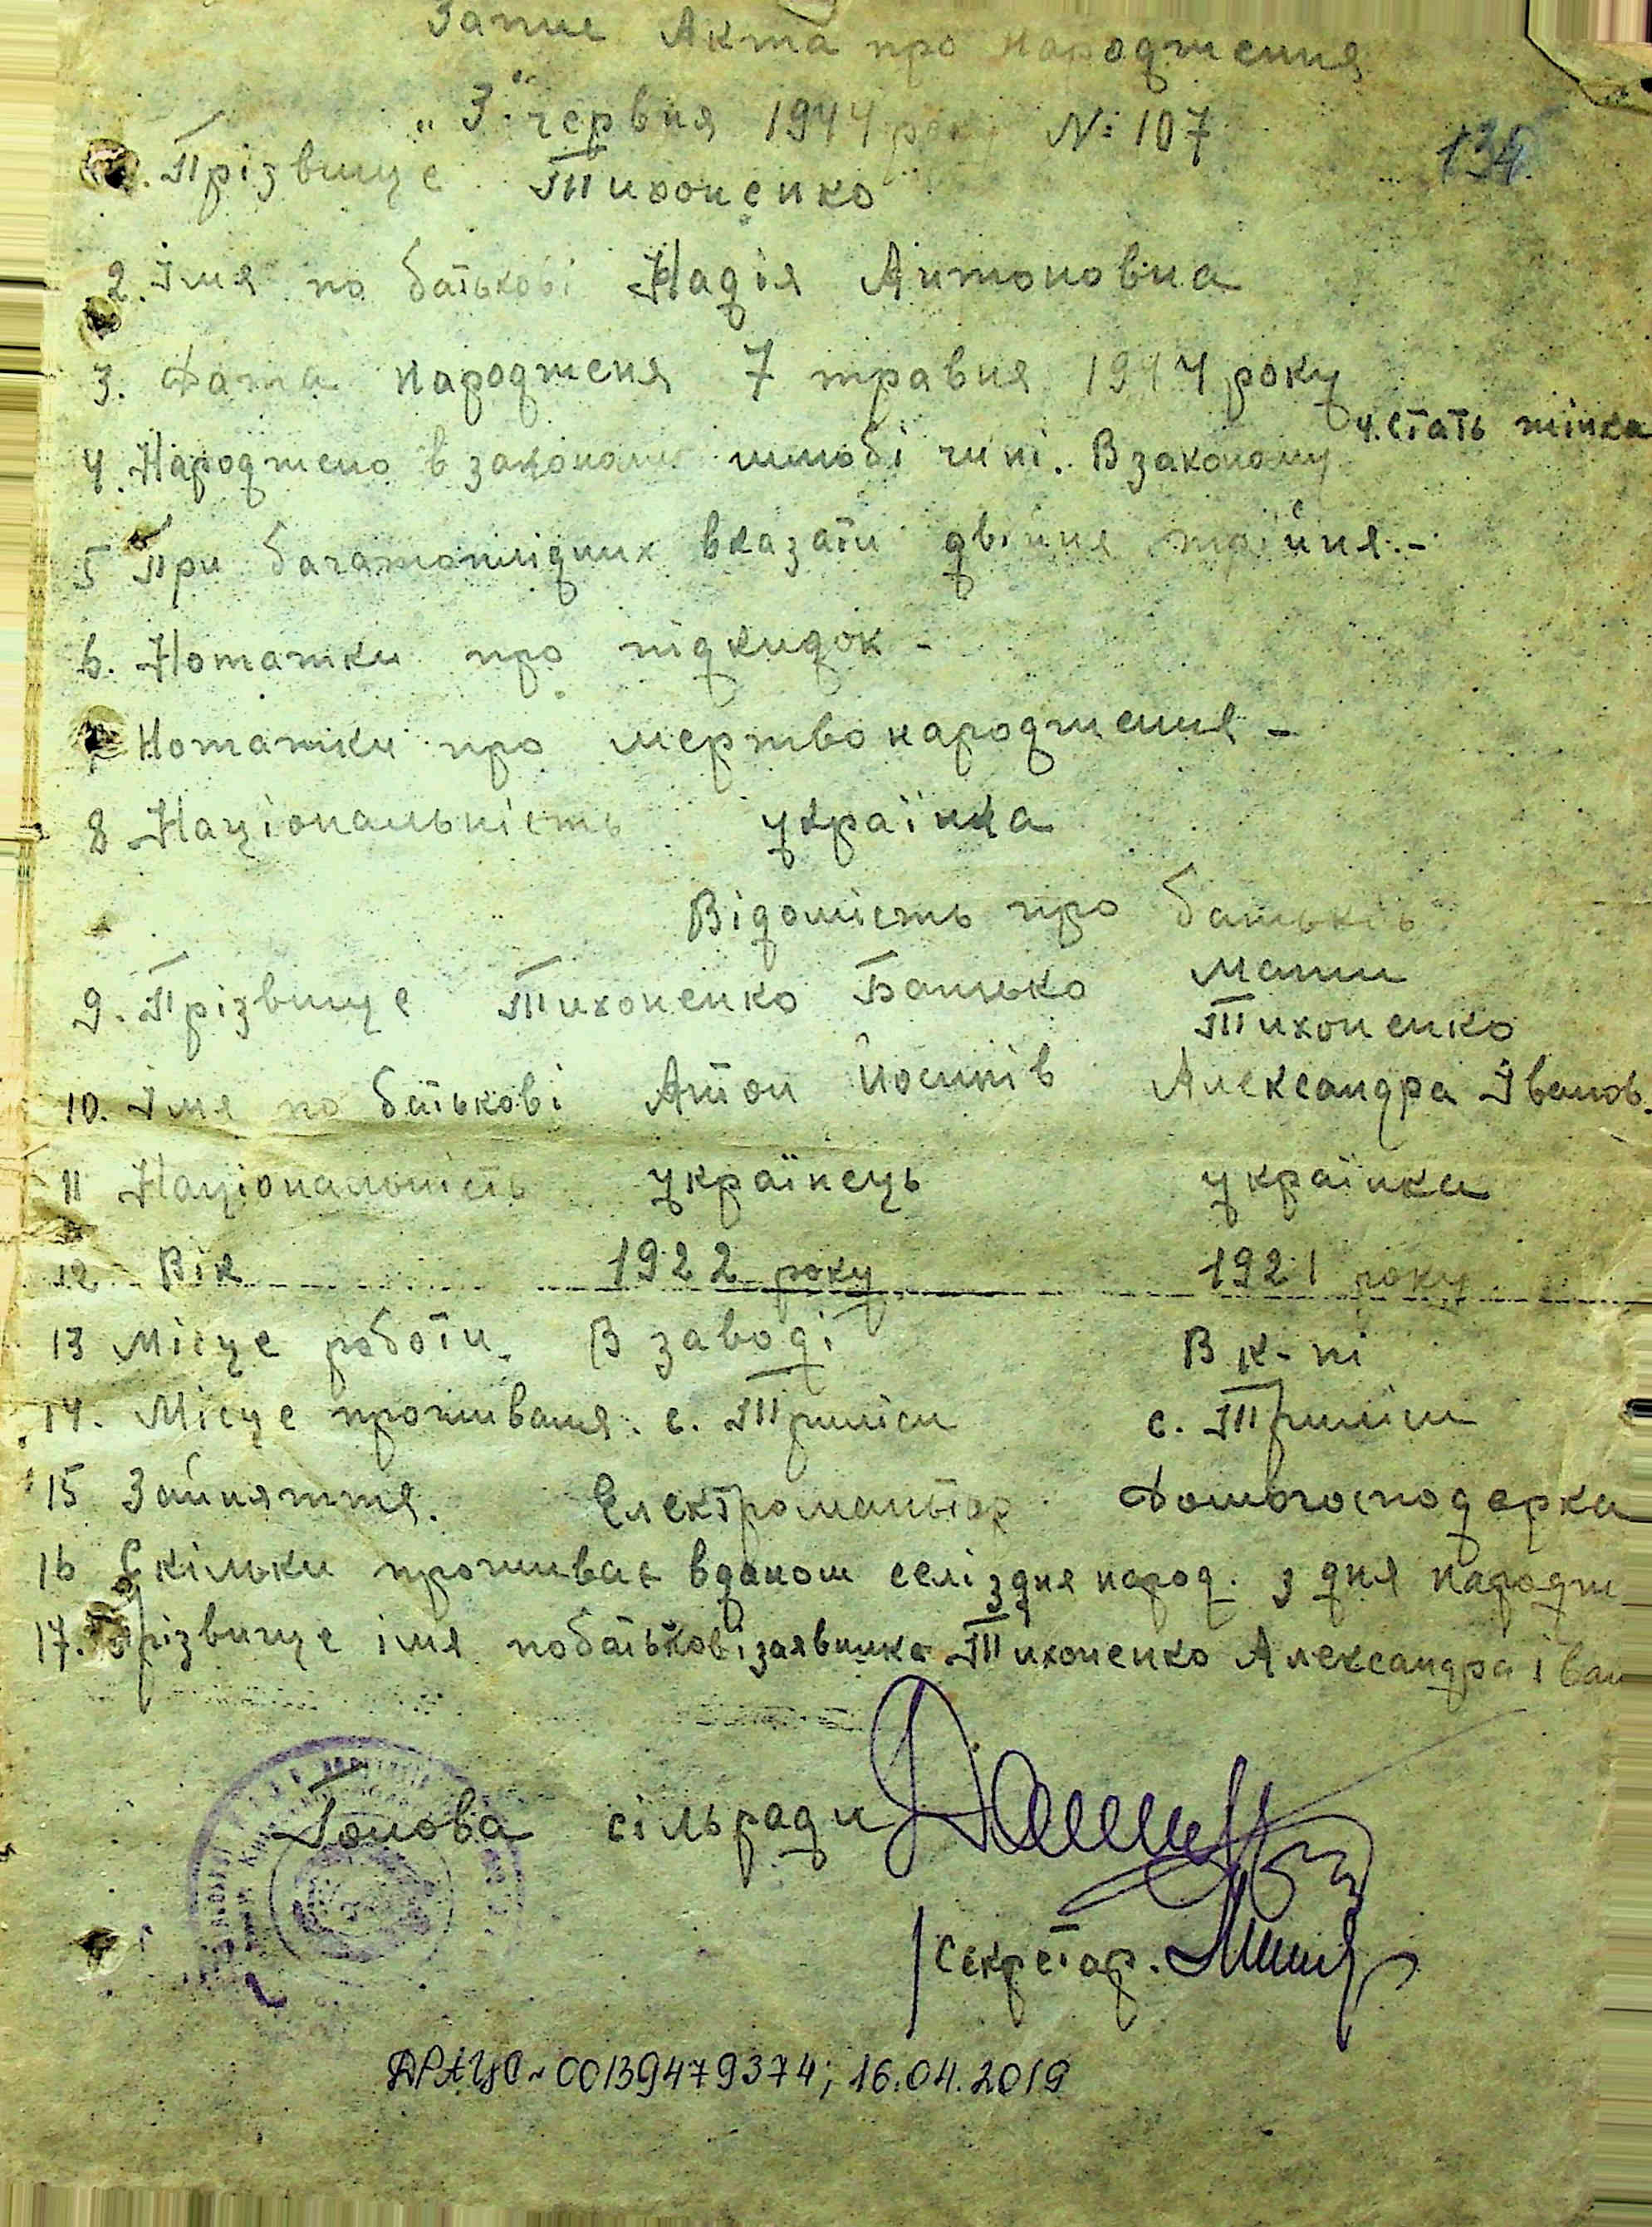 Запис Акта про народження
"3" червня 1944 року № 107
134
1. Прізвище Тихоненко
2. Імя по батькові Надія Антоновна
3. Дата народженя 7 травня 1944 року
4. Стать жінка
4. Народжено в законому шлюбі чи ні. В законому
5 При багатоплідних вказати двійня трійня. -
6. Нотатки про підкидок -
7 Нотатки про мертвонародження -
8 Національність українка
Відомість про батьків
9. Прізвище Тихоненко Батько Мати
Тихоненко
10. Імя по батькові Антон Йосипів Александра Іванов.
11 Національність українець українка
12 Вік 1922 року 1921 року
13 Місце роботи. В заводі В к-пі
14. Місце проживаня. с. Триліси с. Триліси
15 Зайняття. Електромантьор Домогосподерка
16 Скільки проживає вданом селі здня народ. з дня народж
17. Прізвище імя побатькові заявника Тихоненко Александра Іван
Голова сільради
Секретар.
ДРАЦС ~ 00139479374; 16.04.2019